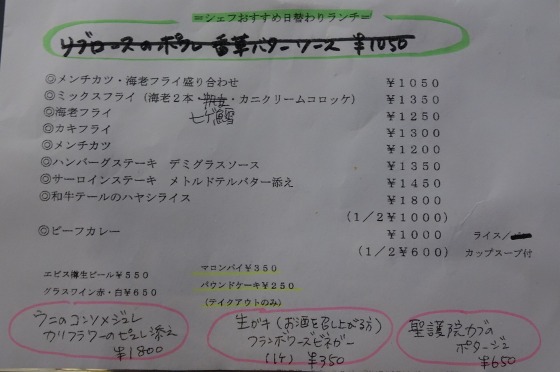 =シェフおすすめ日替わりランチ=
リブロースのポワレ 香草バターソース ¥1050
◎メンチカツ・海老フライ盛り合わせ ¥1050
◎ミックスフライ（海老２本・帆立・カニクリームコロッケ） ¥1350
ヒゲ鱈
◎海老フライ ¥1250
◎カキフライ ¥1300
◎メンチカツ ¥1200
◎ハンバーグステーキ デミグラスソース ¥1350
◎サーロインステーキ メトルドテルバター添え ¥1450
◎和牛テールのハヤシライス ¥1800
(1/2¥1000)
◎ビーフカレー ¥1000 ライス/
(1/2¥600) カップスープ付
エビス樽生ビール¥550
グラスワイン赤・白¥650
マロンパイ¥350
パウンドケーキ¥250
(テイクアウトのみ)
ウニのコンソメジュレ
カリフラワーのピュレ添え
¥1800
生ガキ(お酒を召し上がる方)
フランボワーズビネガー
(1ケ) ¥350
聖護院カブの
ポタージュ
¥650